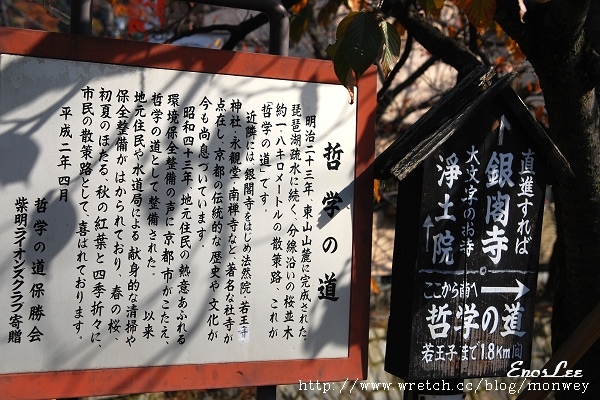 哲学の道
明治二十三年、東山山麓に完成された
琵琶湖疏水に続く、分線沿いの桜並木
約一・八キロメートルの散策路、これが
「哲学の道」です。
近隣には、銀閣寺をはじめ法然院、若王寺
神社・永観堂・南禅寺など、著名な社寺が
点在し、京都の伝統的な歴史や文化が
今も尚息づいています。
昭和四十三年、地元住民の熱意あふれる
環境保全整備の声に京都市がこたえ、
哲学の道として整備された。 以来
地元住民や水道局による献身的な清掃や
保全整備がはかられており、春の桜、
初夏のほたる、秋の紅葉と四季折々に、
市民の散策路として、喜ばれております。
平成二年四月
哲学の道保勝会
紫明ライオンズクラブ寄贈
直進すれば
↑銀閣寺。
大文字のお寺
↑浄土院
ここから南へ→
哲学の道
若王子まで1.8Km間
EnosLee
http://www.wretch.cc/blog/monwey